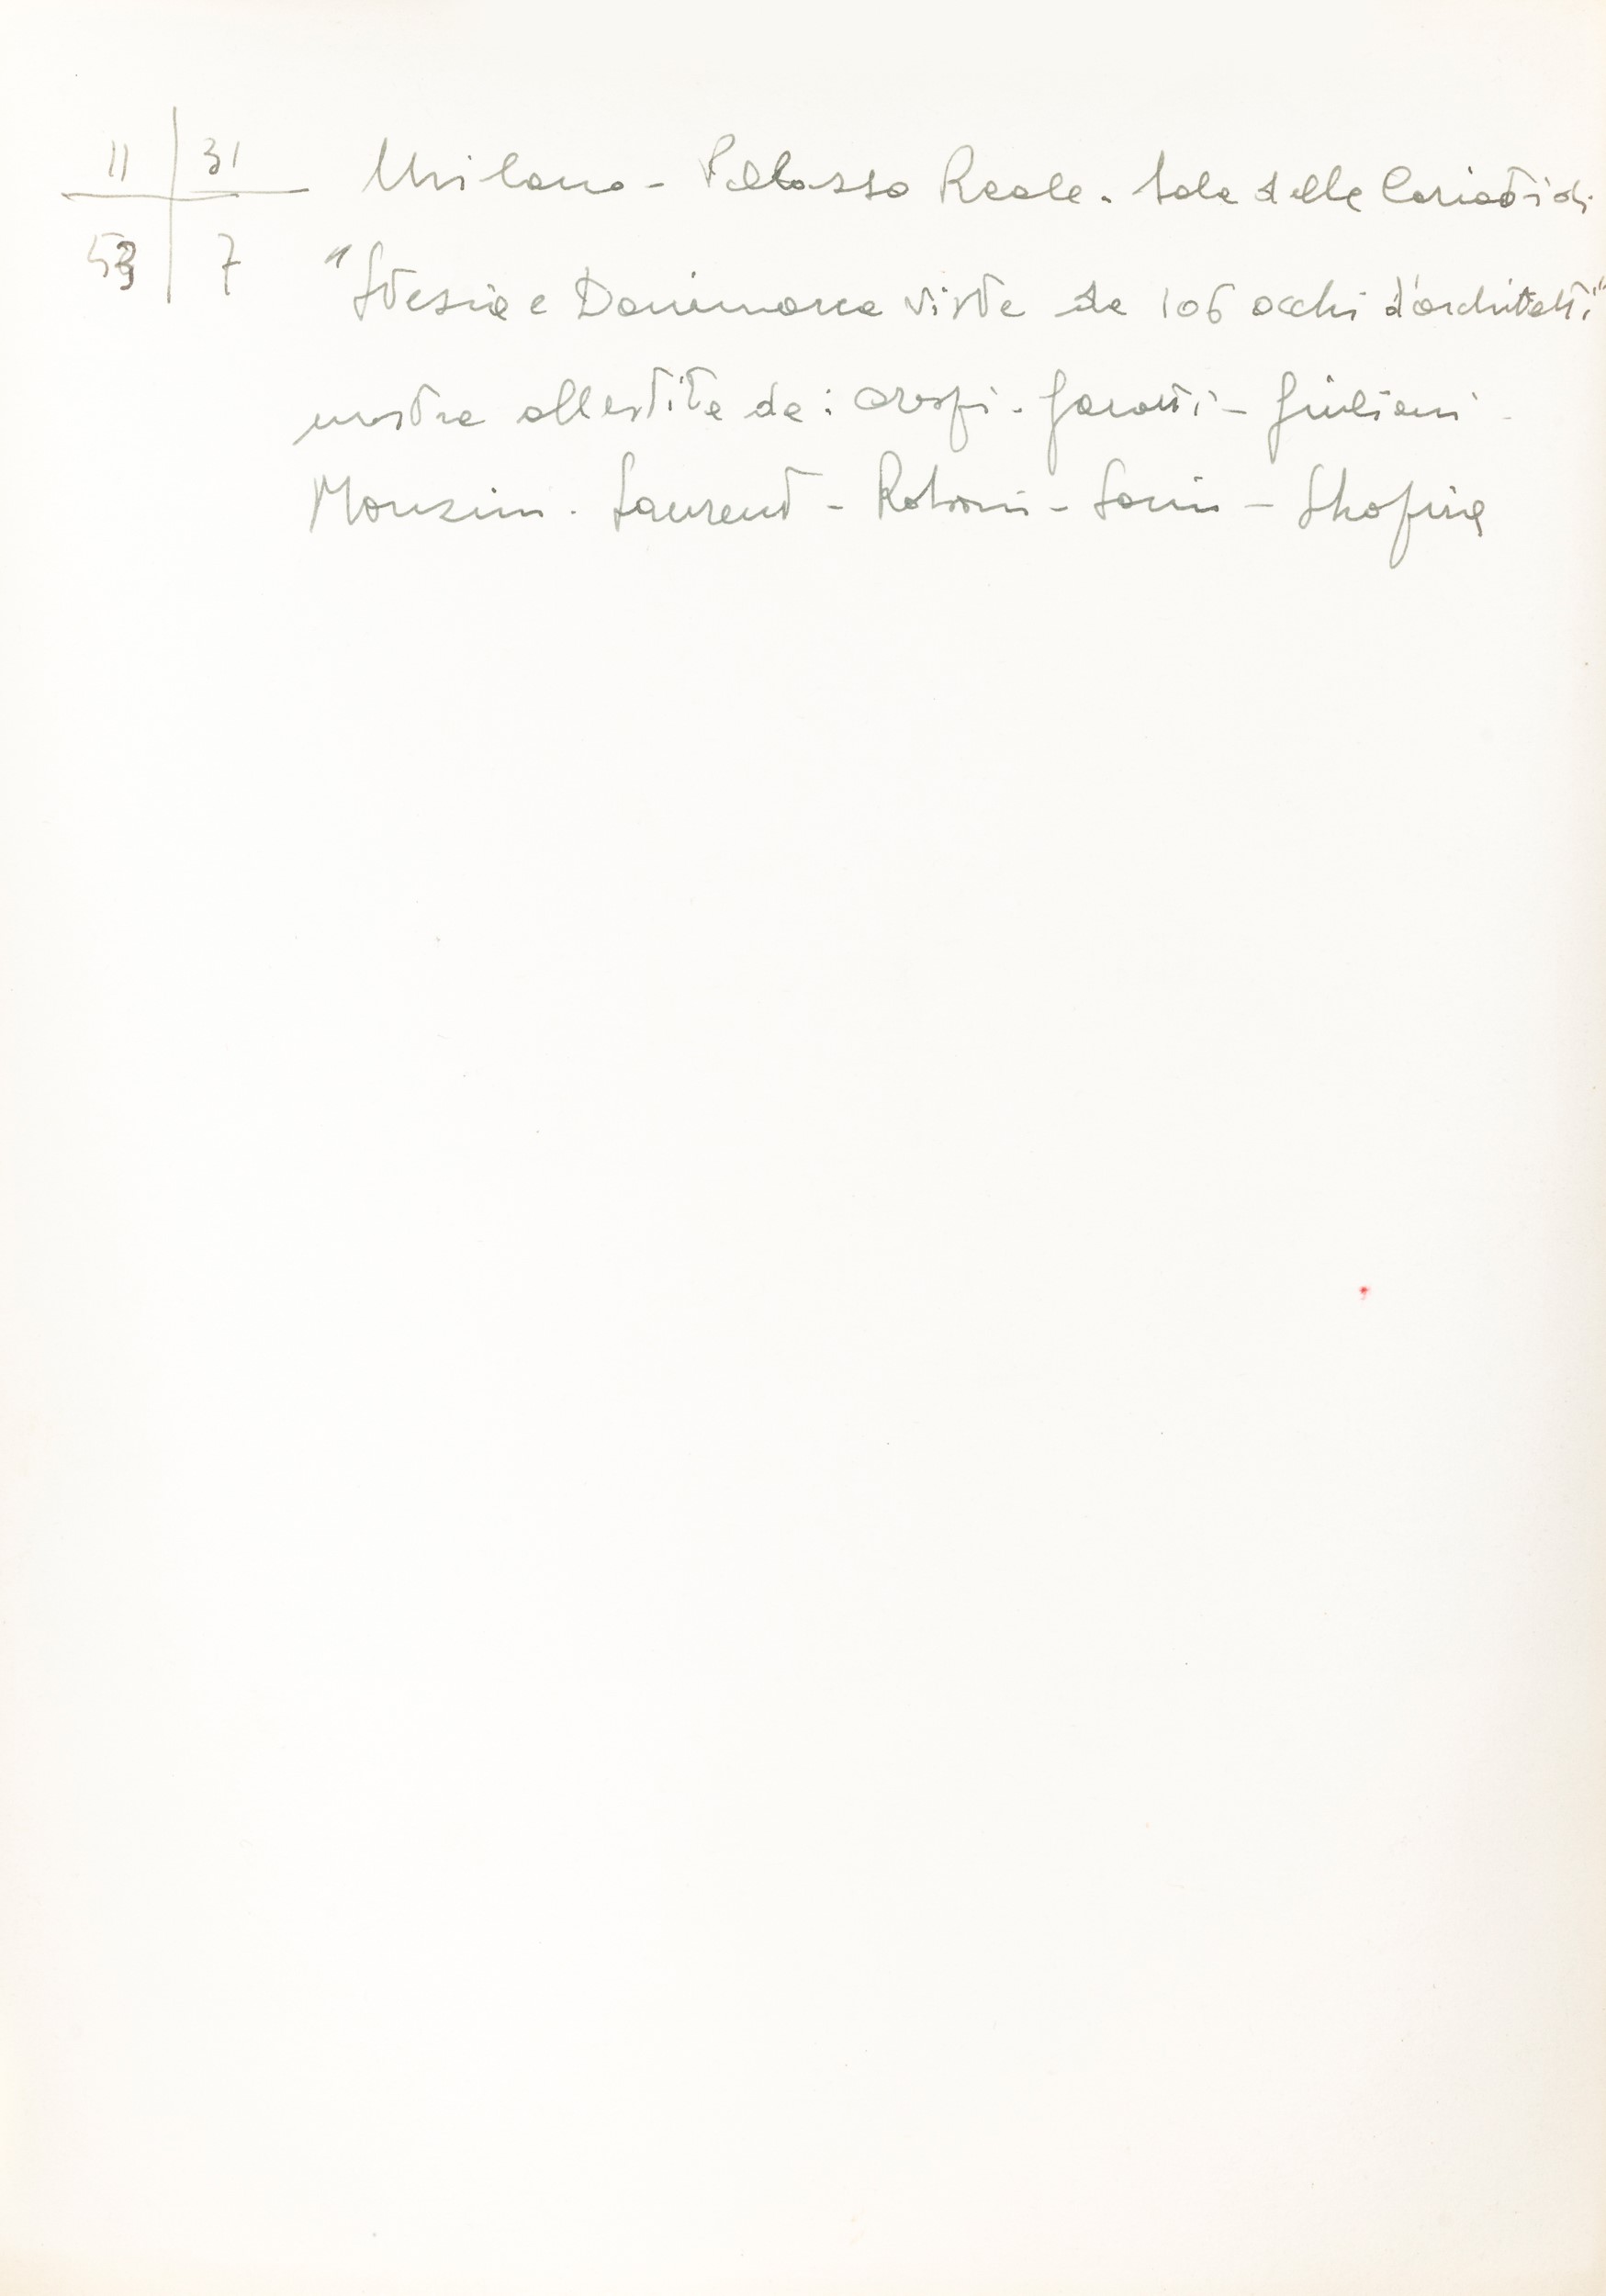 11 31 Milano - Palazzo Reale. Sala delle Cariatidi
53 7 "Svezia e Danimarca viste da 106 occhi d'architetti"
mostra allestita da: Crespi - Garatti - Giuliani -
Monzini - Laurent - Sarin - Shafira